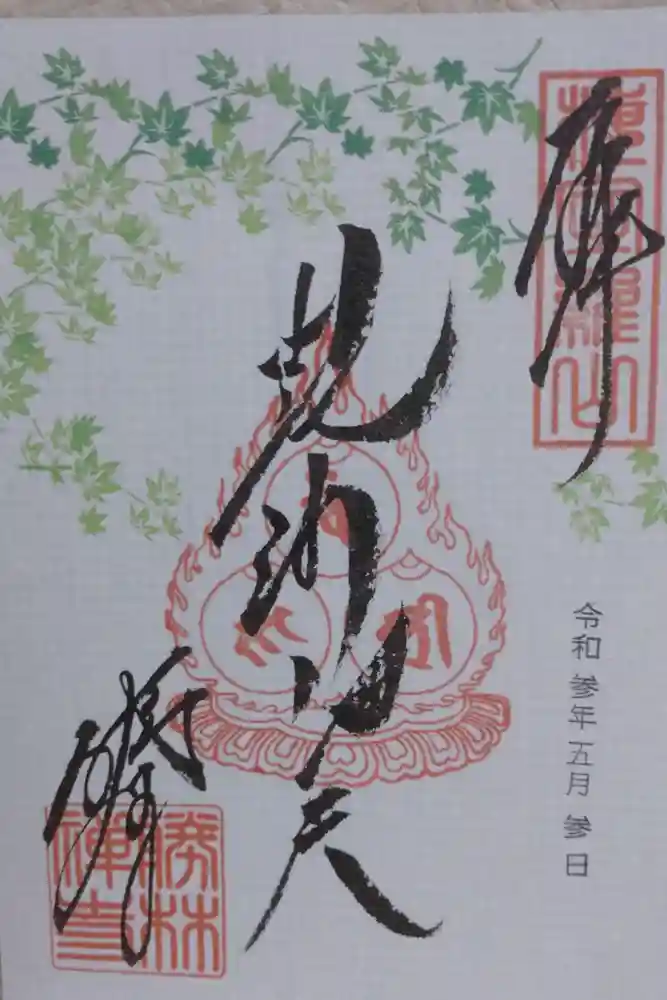 奉拝
令和参年五月参日
毘沙門天
勝林寺
勝林
禅寺